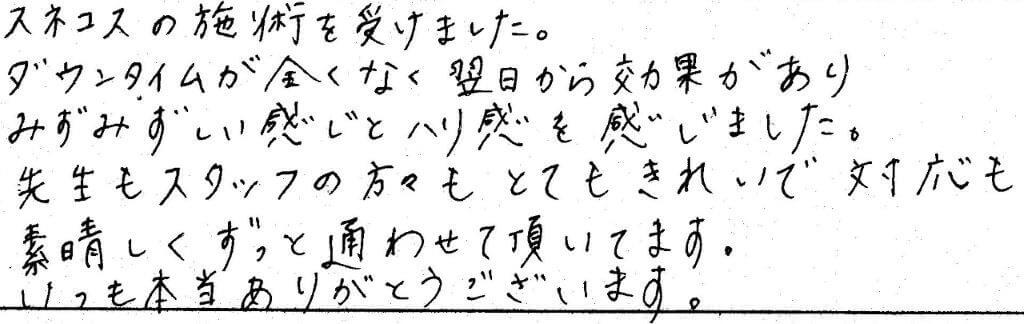 スネコスの施術を受けました。
ダウンタイムが全くなく翌日から効果があり
みずみずしい感じとハリ感を感じました。
先生もスタッフの方々もとてもきれいで対応も
素晴しくずっと通わせて頂いてます。
いつも本当ありがとうございます。